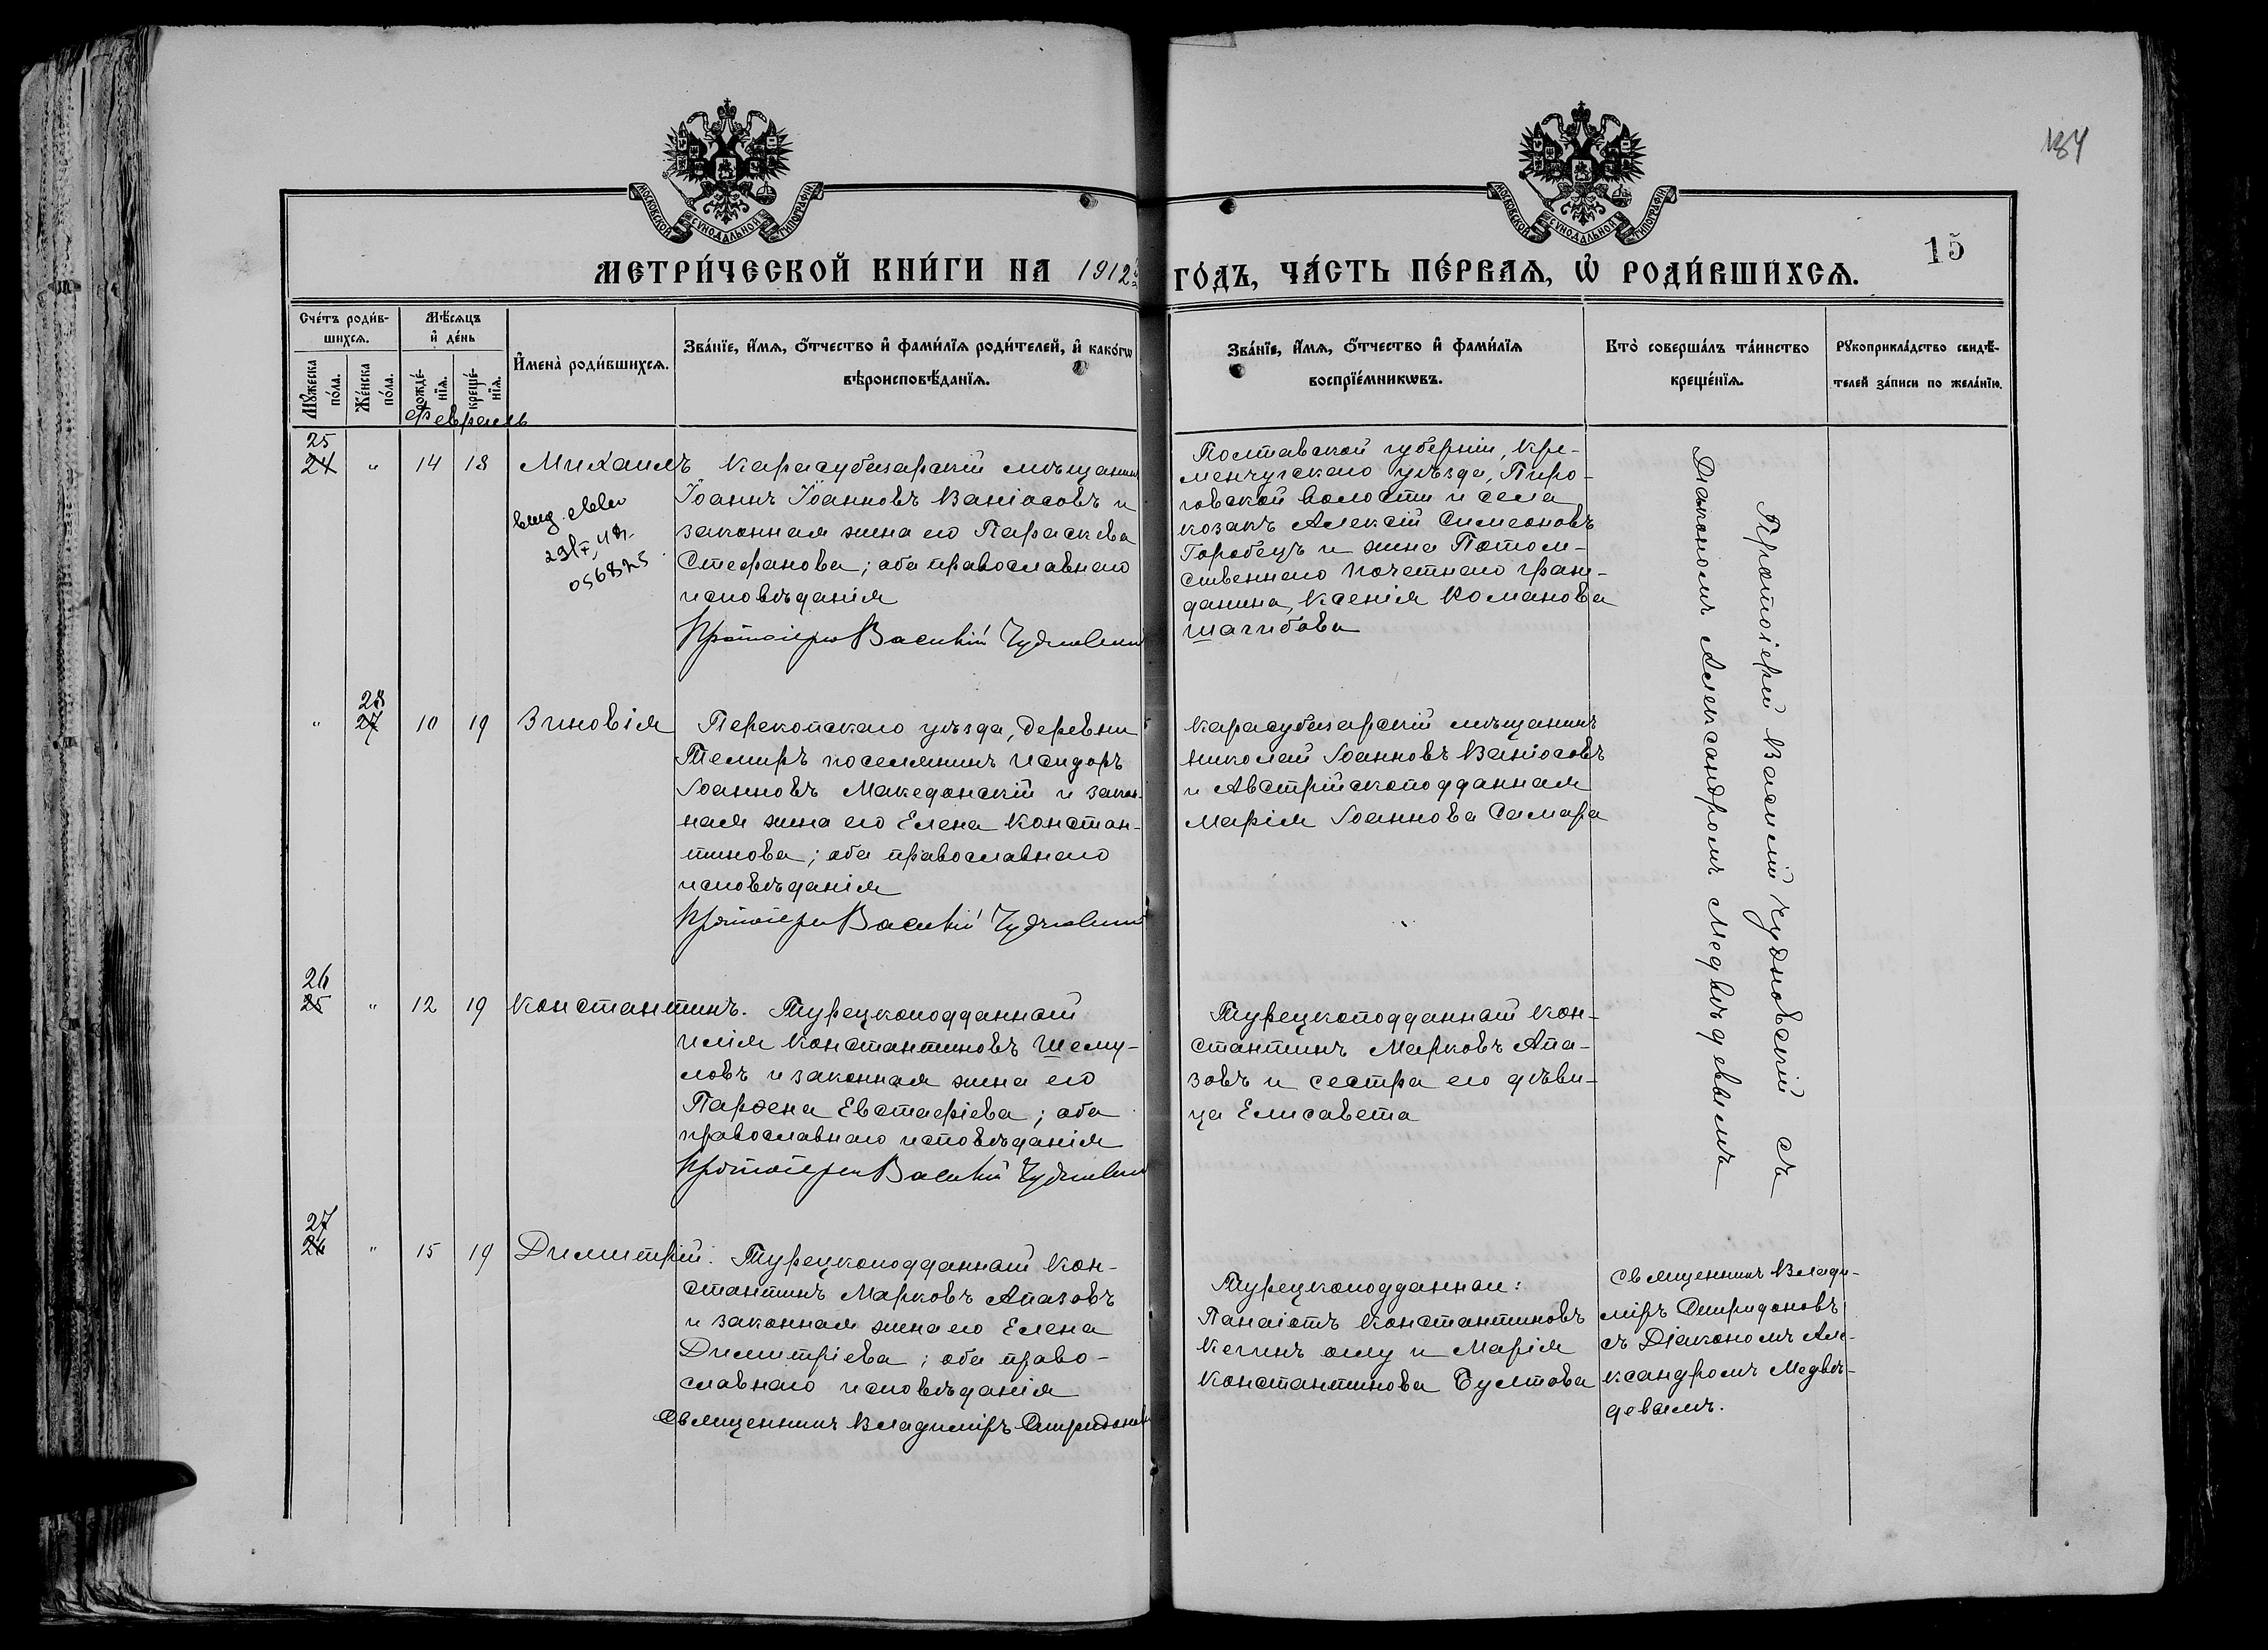 184
МОСКОВСКОЙ СѴНОДАЛЬНОЙ ТИПОГРАФІИ
МОСКОВСКОЙ СѴНОДАЛЬНОЙ ТИПОГРАФІИ
15
МЕТРИ́ЧЕСКОЙ КНИ́ГИ НА 1912
ГО́ДЪ, ЧА́СТЬ ПЕ́РВАѦ, Ѡ РОДИ́ВШИХСѦ.
Сче́тъ роди́в-
шихсѧ.
Мꙋ́жеска
по́ла.
Же́нска
по́ла.
Мѣ́сѧцъ
и҆ де́нь
рожде́-
нїѧ.
креще́-
нїѧ.
И҆мена̀ роди́вшихсѧ.
Зва́нїе, и҆́мѧ, о҆́тчество и҆ фами́лїѧ роди́телей, и҆ како́гѡ
вѣроисповѣ́данїѧ.
Зва́нїе, и҆́мѧ, о҆́тчество и҆ фами́лїѧ
воспрїе́мникѡвъ.
Кто̀ соверша́лъ та́инство
креще́нїѧ.
Рꙋкоприкла́дство свидѣ́-
телей за́писи по жела́нїю.
Февраль
25
24 " 14 18 Михаилъ
Карасубазарскій мѣщанинъ
Іоаннъ Іоанновъ Ваніосовъ и
законная жена его Параскева
Стефанова; оба православнаго
исповѣданія
Протоіерей Василій Чудновскій
056825
Полтавской губерніи, Кре-
менчугскаго уѣзда, Пиро-
говской волости и села
козакъ Алексій Симеоновъ
Горобецъ и жена Потом-
ственнаго почетнаго граж-
данина, Ксенія Романова
Шагибова
Протоіерей Василій Чудновскій съ
Діакономъ Александромъ Медвѣдевымъ
28
" 27 10 19 Зиновія
Перекопскаго уѣзда, деревни
Темиръ поселянинъ Исидоръ
Іоанновъ Македонскій и закон-
ная жена его Елена Констан-
тинова; оба православнаго
исповѣданія
Протоіерей Василій Чудновскій
Карасубазарскій мѣщанинъ
Николай Іоанновъ Ваніосовъ
и Австрійскоподданная
Марія Іоаннова Самара
26
25 " 12 19 Константинъ.
Турецкоподданный
Илія Константиновъ Шему-
ловъ и законная жена его
Парѳена Евстафіева; оба
православнаго исповѣданія
Протоіерей Василій Чудновскій
Турецкоподданный Кон-
стантинъ Марковъ Апа-
зовъ и сестра его дѣви-
ца Елисавета
27
26 " 15 19 Димитрій.
Турецкоподданный Кон-
стантинъ Марковъ Апазовъ
и законная жена его Елена
Димитріева; оба право-
славнаго исповѣданія
Священникъ Владиміръ Спиридоновъ
Турецкоподданные:
Панаіотъ Константиновъ
Кегинъ оглу и Марія
Константинова Бултова
Священникъ Влади-
міръ Спиридоновъ
съ Діакономъ Але-
ксандромъ Медвѣ-
девымъ.